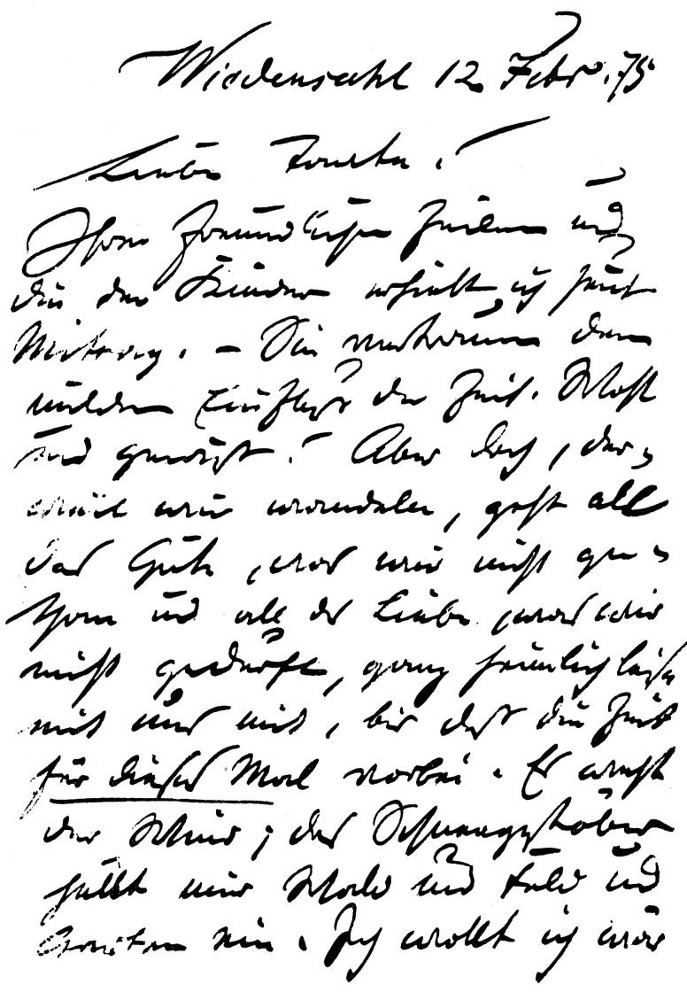 Wiedensahl 12 Febr. 75
Liebe Tante!
Ihre freundlichen Zeilen und
die der Kinder erhielt ich heut
Mittag. – Sie vertrauen dem
milden Einfluß der Zeit. Wohl
und gewiß! Aber doch, der-
weil wir wandeln, geht all
das Gute, was wir nicht ge-
than und all das Liebe, was wir
nicht gedurft, ganz heimlich leise
mit uns mit, bis daß die Zeit
für dieses Mal vorbei. Es weht
der Wind; das Schneegestöber
hüllt mir Wald und Feld und
Garten ein. Ich wollt ich wär